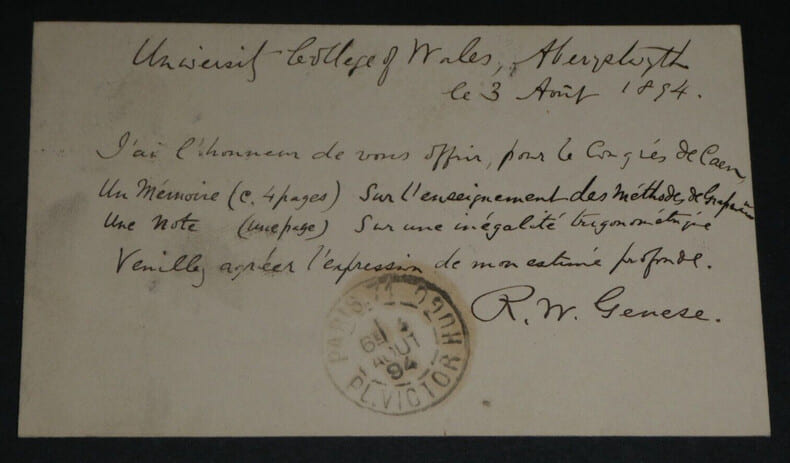 University College of Wales, Aberystwyth
le 3 Août 1894.
J'ai l'honneur de vous offrir, pour le Congrès de Caen,
Un Mémoire (c. 4 pages) Sur l'enseignement des Méthodes de
Une Note (une page) Sur une inégalité trigonométrique
Veuillez agréer l'expression de mon estime profonde.
R. W. Genese.
PARIS 71
AOUT
94
PL. VICTOR HUGO